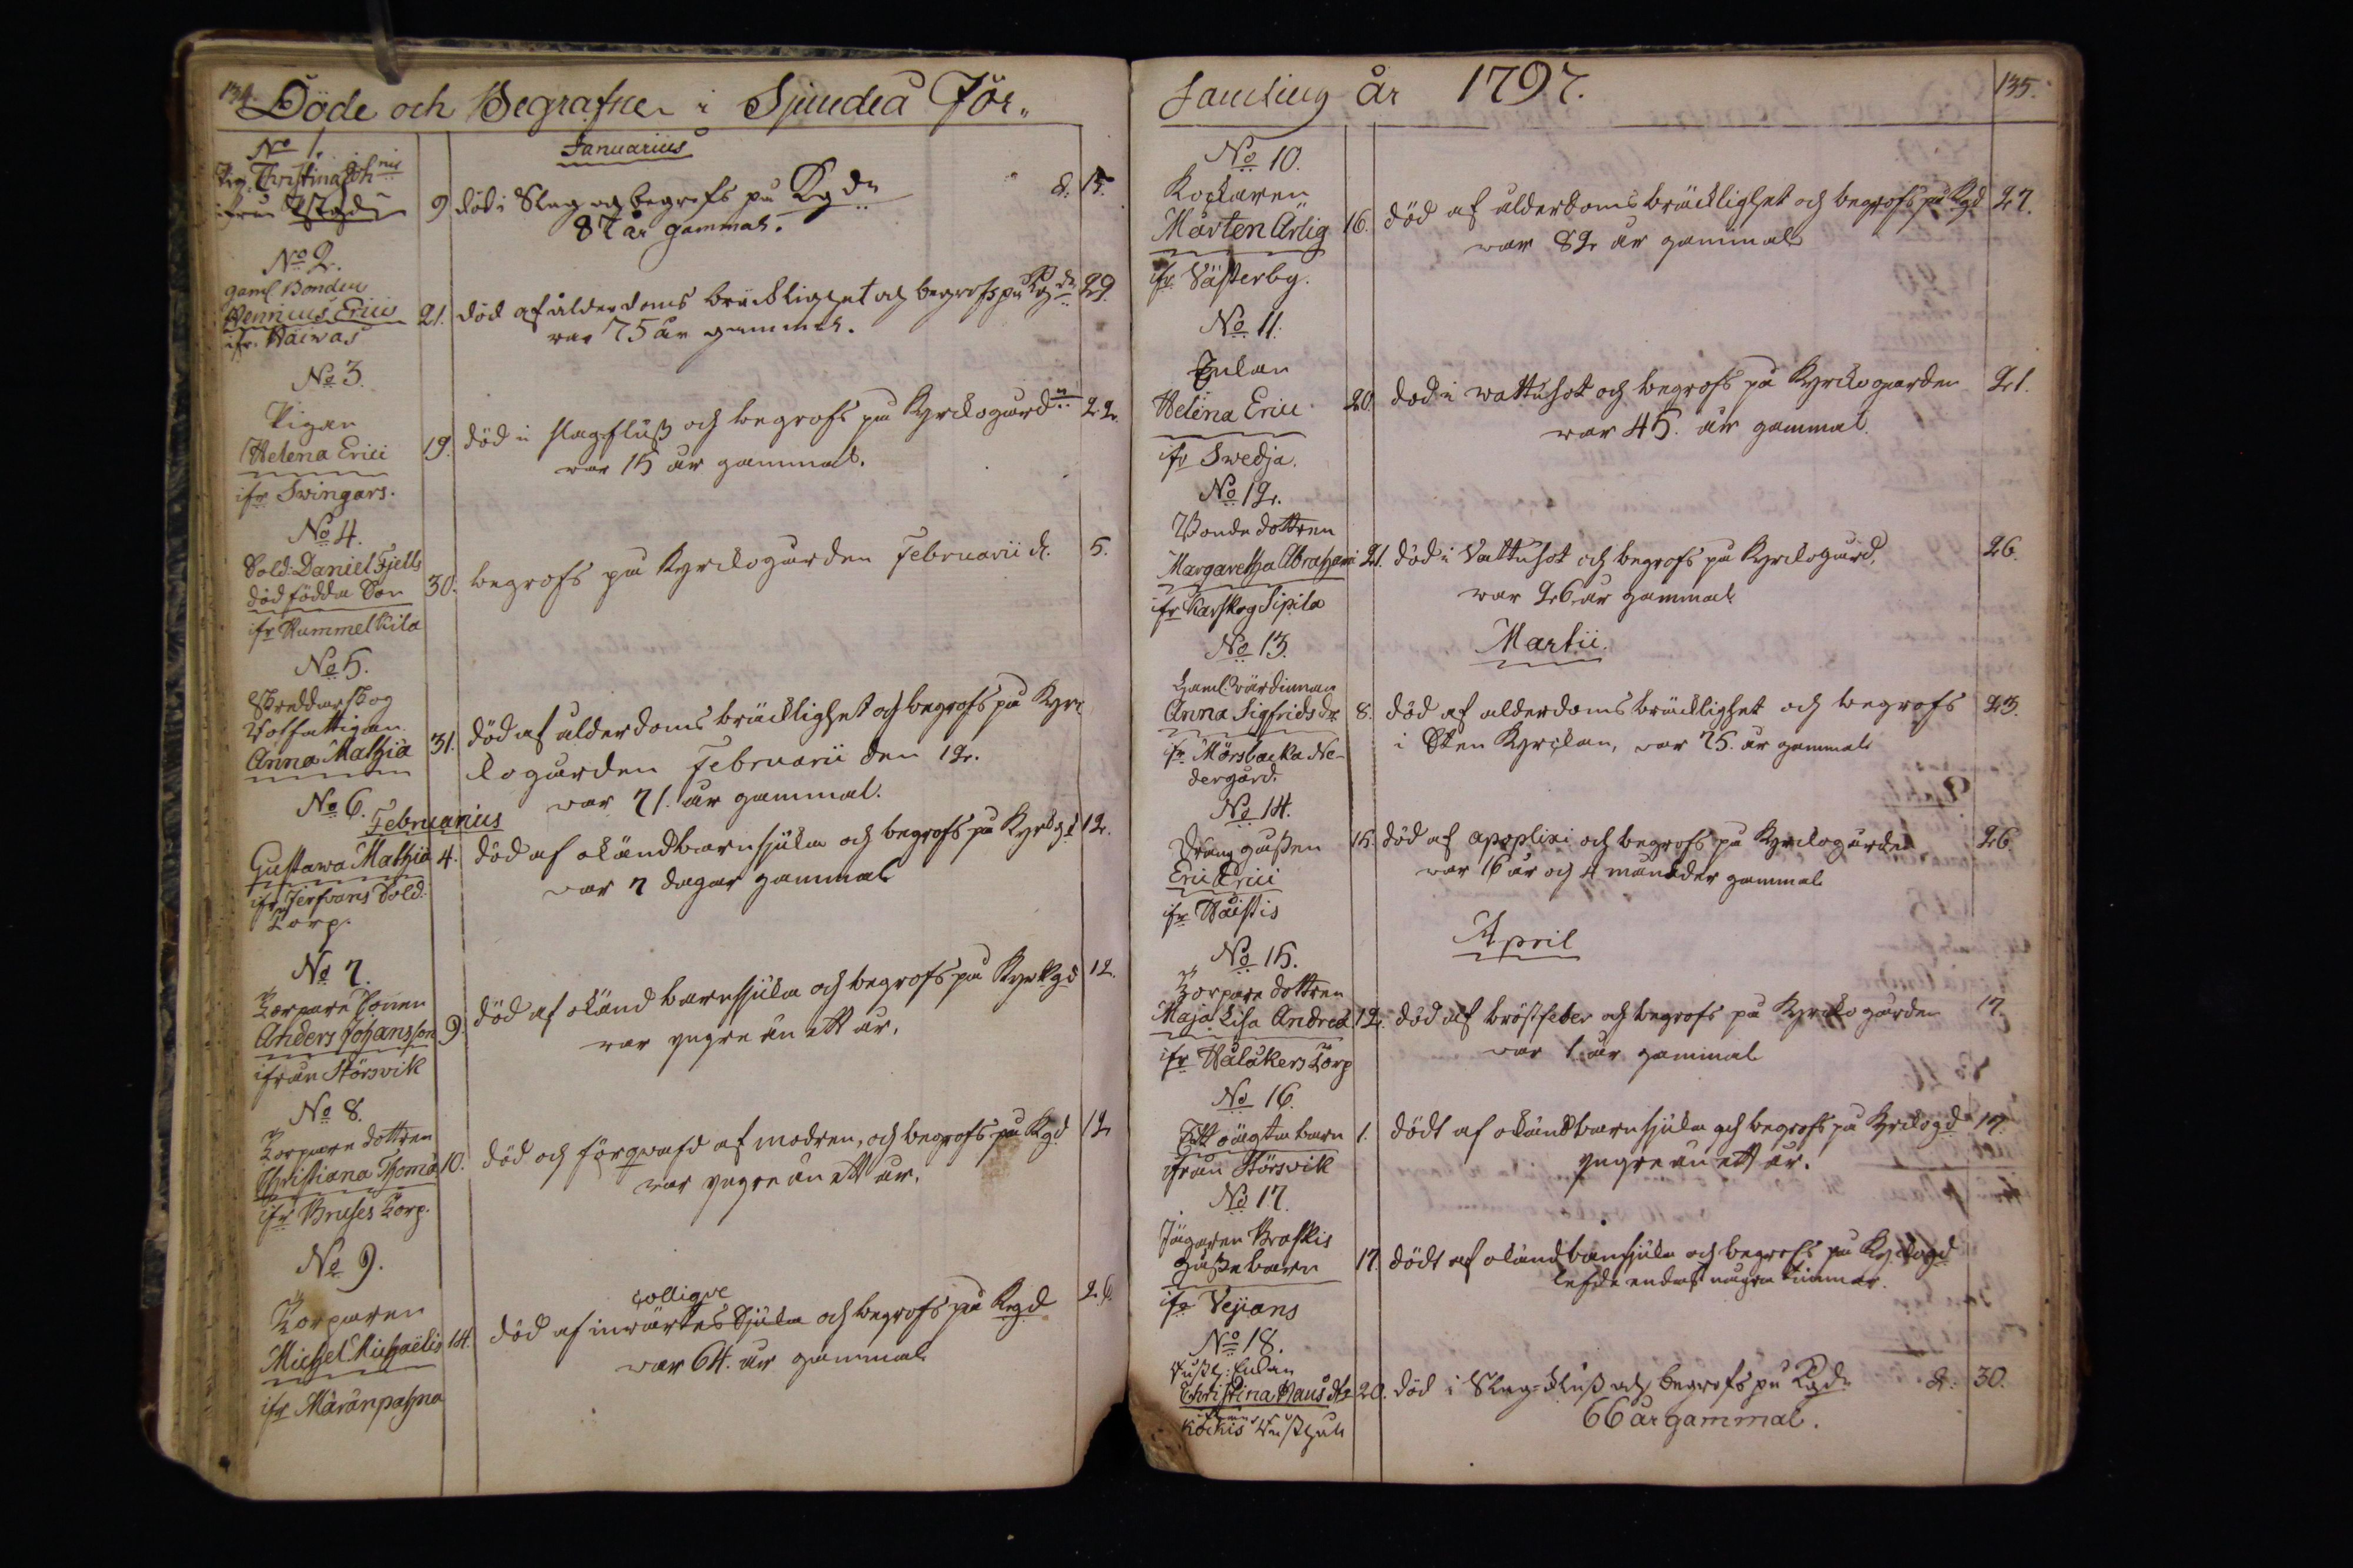 134. Döde och Begrafne i Sjundeå För„
Januarius
No 1.
Pig. Christina Joh nis
ifrån
9 död i Slag och begrofs på Kg dn d. 15.
87 år gammal.
No 2.
Gaml Bonden
Henricus Erici
ifr.
21. död af ålderdoms bräcklighet och begrofs på Kg dn 29.
war 75 år gammal.
No 3.
Pigan
Helena Erici
ifr Svingars.
19. död i slagfluß och begrofs på Kyrckogård n 22.
war 15 år gammal.
No 4.
Sold: Daniel Fjells
dödfödda Son
ifr Hummelkila
30. begrofs på Kyrckogården Februarii d. 5.
No 5.
Skreddarskog
Anna Mathiæ
31. död af ålderdoms bräcklighet och begrofs på Kyrc
kogården Februarii den 12.
war 71. år gammal.
No 6.
Februarius
Gustawa Mathiæ
ifr Jerfvans Sold.
Torp.
4. död af okänd barnsjuka och begrofs på Kyrkgd 12.
war 7 dagar gammal
No 7.
Torpare Sonen
Anders Johansson
ifrån Störsvik
9. död af okänd barnsjuka och begrofs på Kyrkgd 12.
war yngre än ett år.
No 8.
Torpare dottren
Christiana Thomæ
ifr Bruses Torp.
10. död och förqwafd af modren, och begrofs på Kgd 12
war yngre än ett år.
No 9.
Torparen
Michel Michaëlis
ifr Märänpahna
colliqve
14. död af inwärtes Sjuka och begrofs på Krgd 26.
war 64. år gammal
Samling År 1797. 135.
No 10.
Kockaren
Mårten Ärlig
ifr Västerby.
16. död af ålderdoms bräcklighet och begrofs på Kgd 27.
war 82 år gammal
No 11.
Enkan
Helena Erici
ifr Swedja.
20. död i wattusot och begrofs på Kyrckogården 21.
war 45. år gammal.
No 12.
Bonde dottren
Margaretha Abrahami
ifr Karskog Sipila
21. död i Vattusot och begrofs på Kyrckogård. 26.
war 26 år gammal
Martii.
No 13.
Gaml. wärdinnan
Anna Sigfridsdr.
ifr Mörsbacka Ne-
dergård.
8. död af ålderdoms bräcklighet och begrofs 23.
i Sten Kyrckan, war 75. år gammal
No 14.
Dräng gåßen
Eric Erici
ifr
15. död af apoplixi och begrofs på Kyrckogården 26.
war 16 år och 4 månader gammal
April
No 15.
Torpare dottren
Maja Lisa Andreæ
ifr Hålåkers Torp
12. död af bröstfeber och begrofs på Kyrckogården 17.
war 1. år gammal
No 16.
Ett oägta barn
ifrån Störsvik
1. dödt af okänd barnsjuka och begrofs på Kyrckogd 17.
yngre än ett år.
No 17.
Jägaren Braskis
gåßebarn
ifr Vejians
17. dödt af okänd barnsjuka och begrofs på Kyrckogd
lefde endast några timmar.
No 18.
Enkan
Christina Hans dtr
ifrån
Kockis
20. död i Slag-fluß och begrofs på Kgdn d. 30.
66 år gammal.